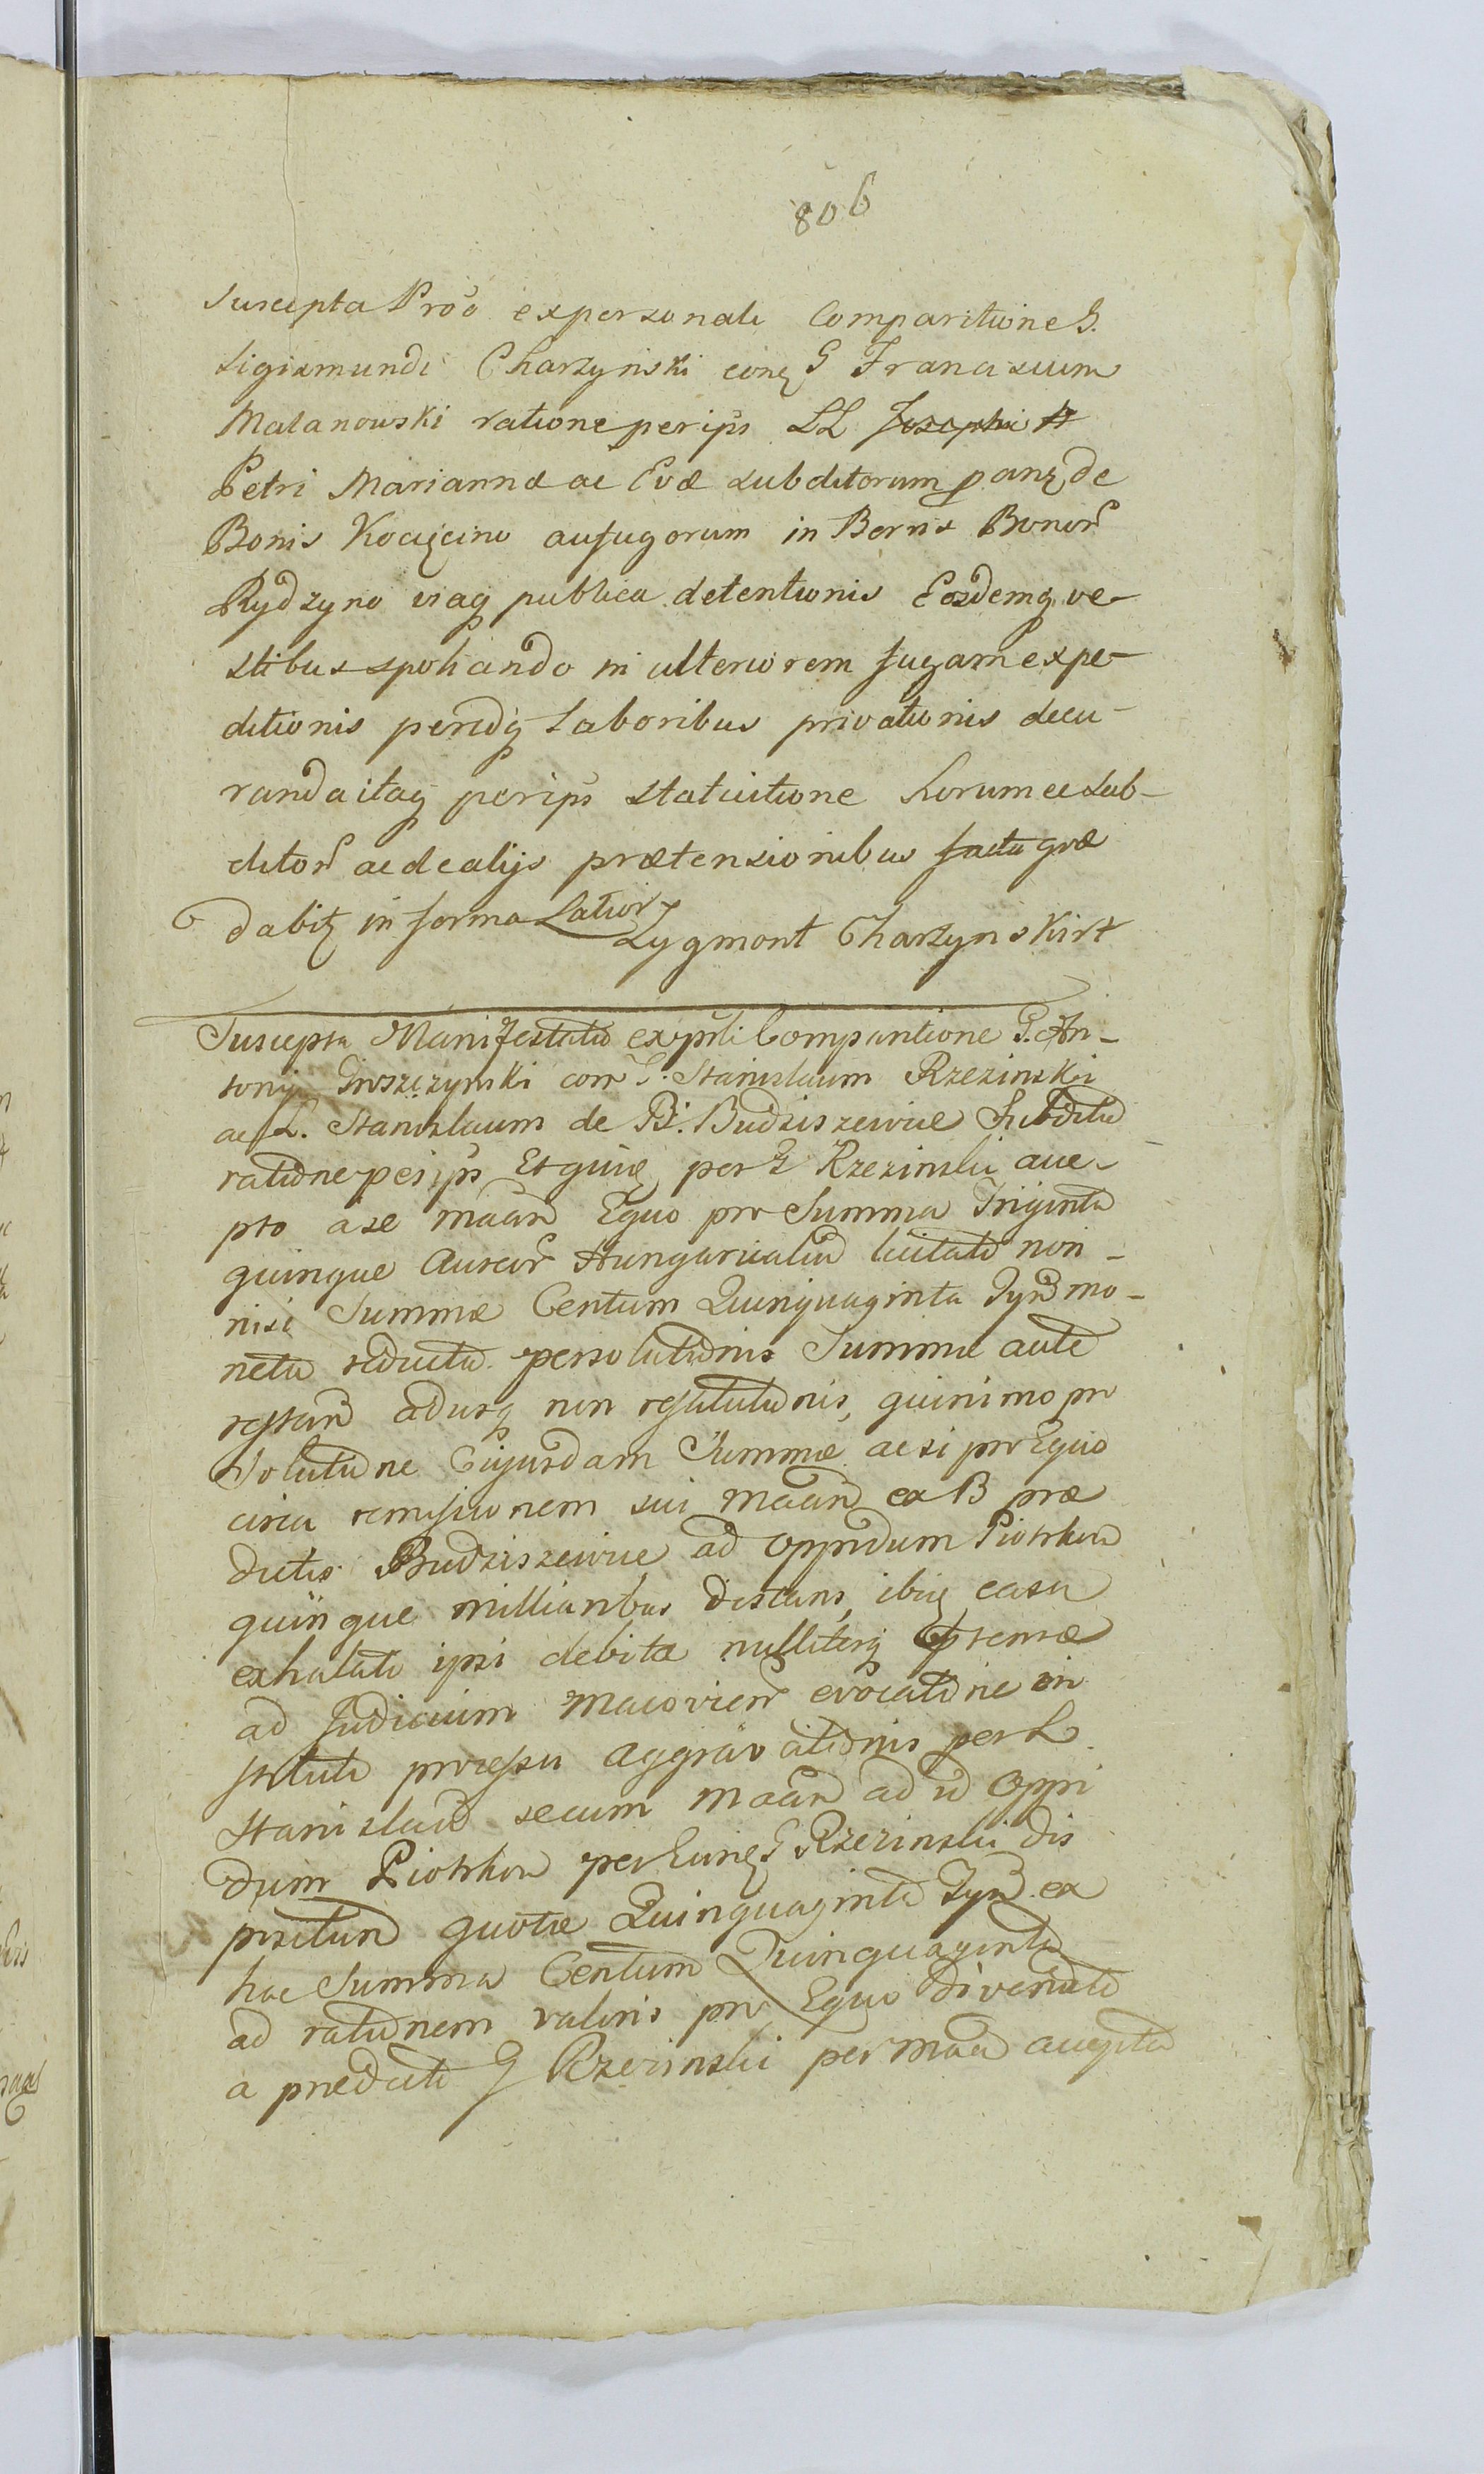 806
Suscepta Pröö expersonali Comparitione G.
Sigismundi Charzynski coñq G Franciscum
Malanowski ratione per ips̃ LL Josephi
Petri Mariannæ ac Evæ subditorum de
Bonis Kocięcino aufugorum in Bonis Bonor̃
Rydzyno viaq publica detentionis Eosdemq ve-
stibus spoliando in ulteriorem fugam expe-
ditionis laboribus privationis decu-
randa itaq per ips̃ statuitione horumce sub-
ditor̃ ac de alijs prætensionibus factu qræ
dabiţ in forma Latiori
Zygmont Charzynski
Suscepta Manifestatio ex pñli Comparitione G. An-
tonij con̄ G. Stanislaum Rzezinski
ac L. Stanislaum de B. Budziszewice Subditū
ratione per ips̃ per G Rzezinski acce-
pto a se mañ Equo pro Summa Triginta
quinque Aureor̃ Hungaricaliū licitati non-
nisi Summæ Centum Quinquaginta Tyn̄ mo-
neta reducta persolutionis Summæ autē
restañ adusq non restitutionis, quinimo pro
Solutione Cujusdam Summæ ac si pro Equo
circa remissionem sui mañ ex B præ
dictis Budziszewice ad oppidum Piotrkow
quinque milliaribus distans, ibiq casu
exhalati ipsi debitæ nulliterq
ad Judicium evocatione in
stituti processu aggravationis per L
Stanislaū secum mañ ad id Oppi
dum Piotrkow per Eunq G Rzezinski dis
positum quotæ Quinquaginta Tyn̄ ex
hac Summa Centum Quinquaginta
ad rationem valoris pro Equo divenditi
a prædicto G Rzezinski per mañ accepta